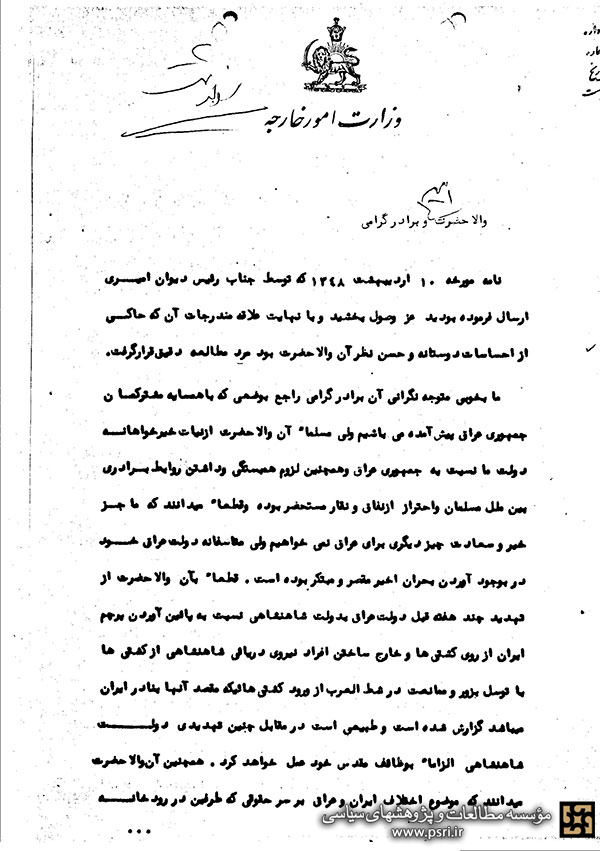 وزارت امور خارجه
والاحضرت و برادر گرامی
نامه مورخه ۱۰ اردیبهشت ۱۳۴۸ که توسط جناب رئیس دیوان امیری
ارسال فرموده بودید عز وصول بخشید و با نهایت علاقه مندرجات آن که حاکی
از احساسات دوستانه و حسن نظر آن والاحضرت بود مورد مطالعه دقیق قرار گرفت.
ما بخوبی متوجه نگرانی آن برادر گرامی راجع بوضعی که با همسایه مشترکمان
جمهوری عراق پیش آمده می باشیم ولی مسلماً آن والاحضرت از نیات خیرخواهانه
دولت ما نسبت به جمهوری عراق و همچنین لزوم همبستگی و داشتن روابط برادری
بین ملل مسلمان و احتراز از نفاق و نقار مستحضر بوده و قطعاً میدانند که ما جز
خیر و سعادت چیز دیگری برای عراق نمی خواهیم ولی متاسفانه دولت عراق خود
در بوجود آوردن بحران اخیر مقصر و مبتکر بوده است . قطعاً بآن والاحضرت از
تهدید چند هفته قبل دولت عراق بدولت شاهنشاهی نسبت به پائین آوردن پرچم
ایران از روی کشتی ها و خارج ساختن افراد نیروی دریائی شاهنشاهی از کشتی ها
با توسل بزور و ممانعت در شط العرب از ورود کشتی هائیکه مقصد آنها بنادر ایران
میباشد گزارش شده است و طبیعی است در مقابل چنین تهدیدی دولت
شاهنشاهی الزاماً بوظائف مقدس خود عمل خواهد کرد . همچنین آن والاحضرت
میدانند که موضوع اختلاف ایران و عراق بر سر حقوقی که طرفین در رودخانه
...
مؤسسه مطالعات و پژوهشهای سیاسی
www.psri.ir